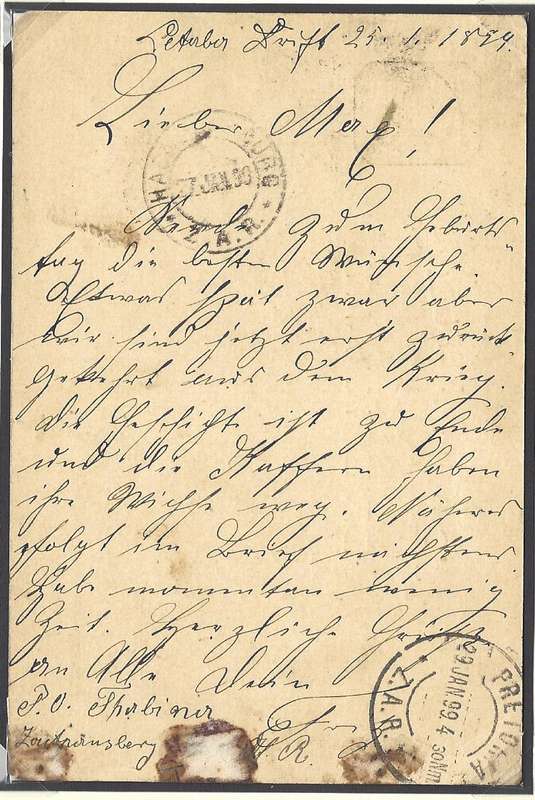 Letaba Drift 25. 1. 1899.
Lieber Max!
HA BURG
27. JAN. 99
Z. A. R.
Sende zum Geburts
tag die besten Wünsche.
Etwas spät zwar aber
wir sind jetzt erst zurück
gekehrt aus dem Krieg.
die Geschichte ist zu Ende
und die Kaffern haben
ihre Wichse weg. Näheres
folgt im Brief nächstens
Habe momentan wenig
Zeit. Herzliche Grüße
an Alle Dein
P. O. Thabina
Zoutpansberg
PRETORIA
29 JAN 99 4 30 NM
Z.A.R.